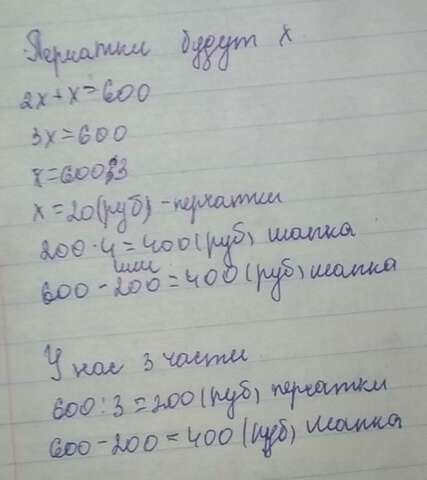 Перчатки будут х
2х+х=600
3х=600
х=600:3
х=20(руб)-перчатки
200·4=400(руб) шапка
или
600-200=400(руб) шапка
У нас 3 части
600:3=200(руб) перчатки
600-200=400(руб) шапка